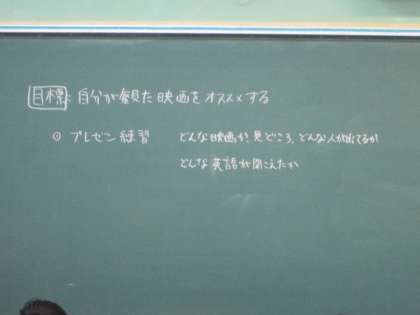 目標：自分が観た映画をオススメする
① プレゼン練習 どんな映画か、見どころ、どんな人が出てるか
どんな英語が聞こえたか